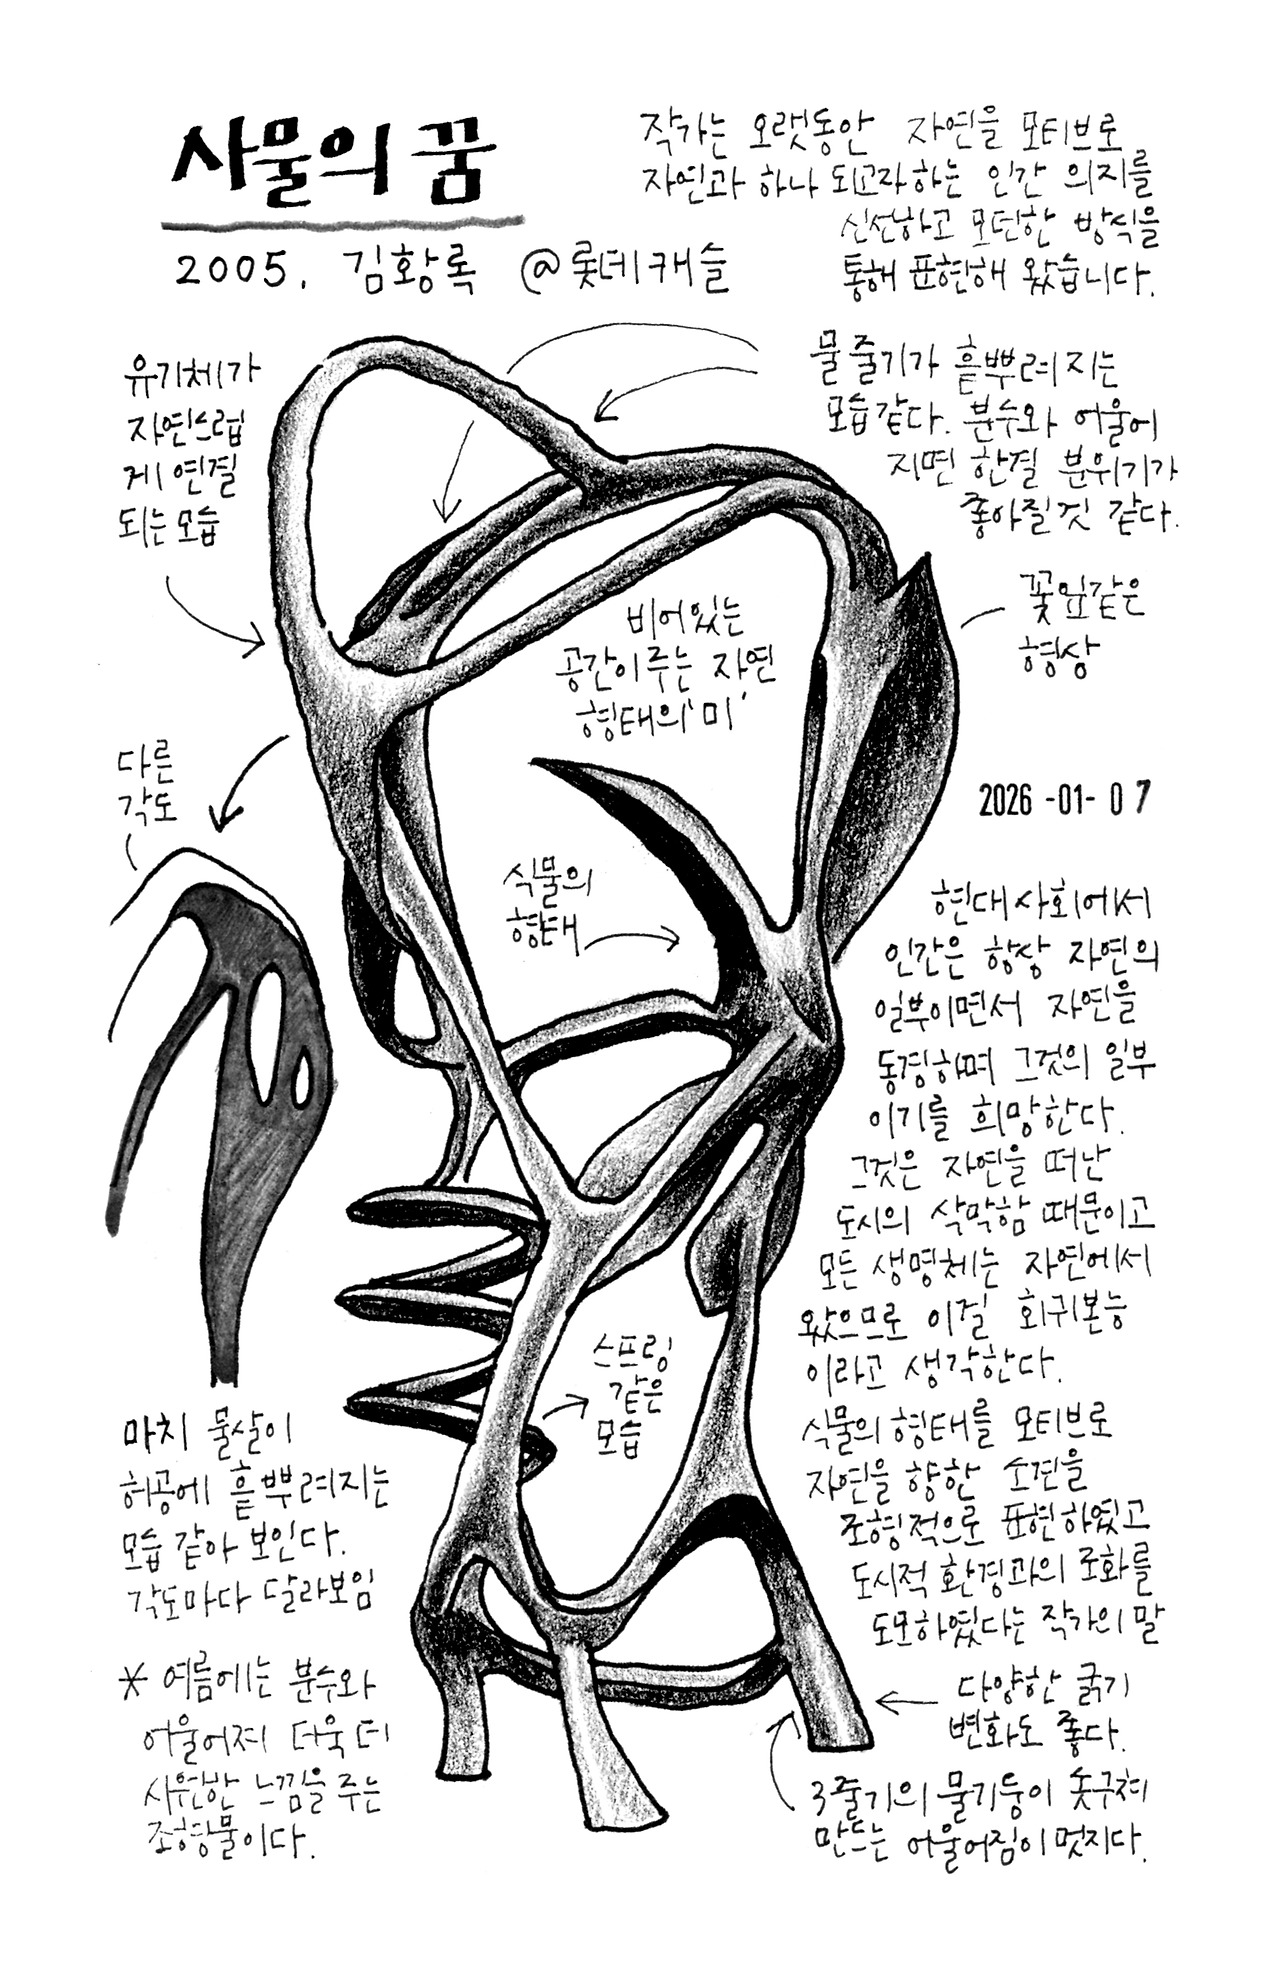 사물의 꿈
2005. 김황록 @롯데캐슬
작가는 오랫동안 자연을 모티브로
자연과 하나 되고자하는 인간 의지를
신선하고 모던한 방식을
통해 표현해 왔습니다.
유기체가
자연스럽
게 연결
되는 모습
물 줄기가 흩뿌려 지는
모습같다. 분수와 어울어
지면 한결 분위기가
좋아질것 같다.
꽃잎같은
형상
비어있는
공간이 주는 자연
형태의 '미'
다른
각도
2026 -01- 0 7
식물의
형태
현대사회에서
인간은 항상 자연의
일부이면서 자연을
동경하며 그것의 일부
이기를 희망한다.
그것은 자연을 떠난
도시의 삭막함 때문이고
모든 생명체는 자연에서
왔으므로 이걸 회귀본능
이라고 생각한다.
스프링
같은
모습
식물의 형태를 모티브로
자연을 향한 소견을
조형적으로 표현하였고
도시적 환경과의 조화를
도모하였다는 작가의 말
마치 물살이
허공에 흩뿌려지는
모습 같아 보인다.
각도마다 달라보임
* 여름에는 분수와
어울어져 더욱 더
시원한 느낌을 주는
조형물이다.
다양한 굵기
변화도 좋다.
3줄기의 물기둥이 솟구쳐
만드는 어울어짐이 멋지다.